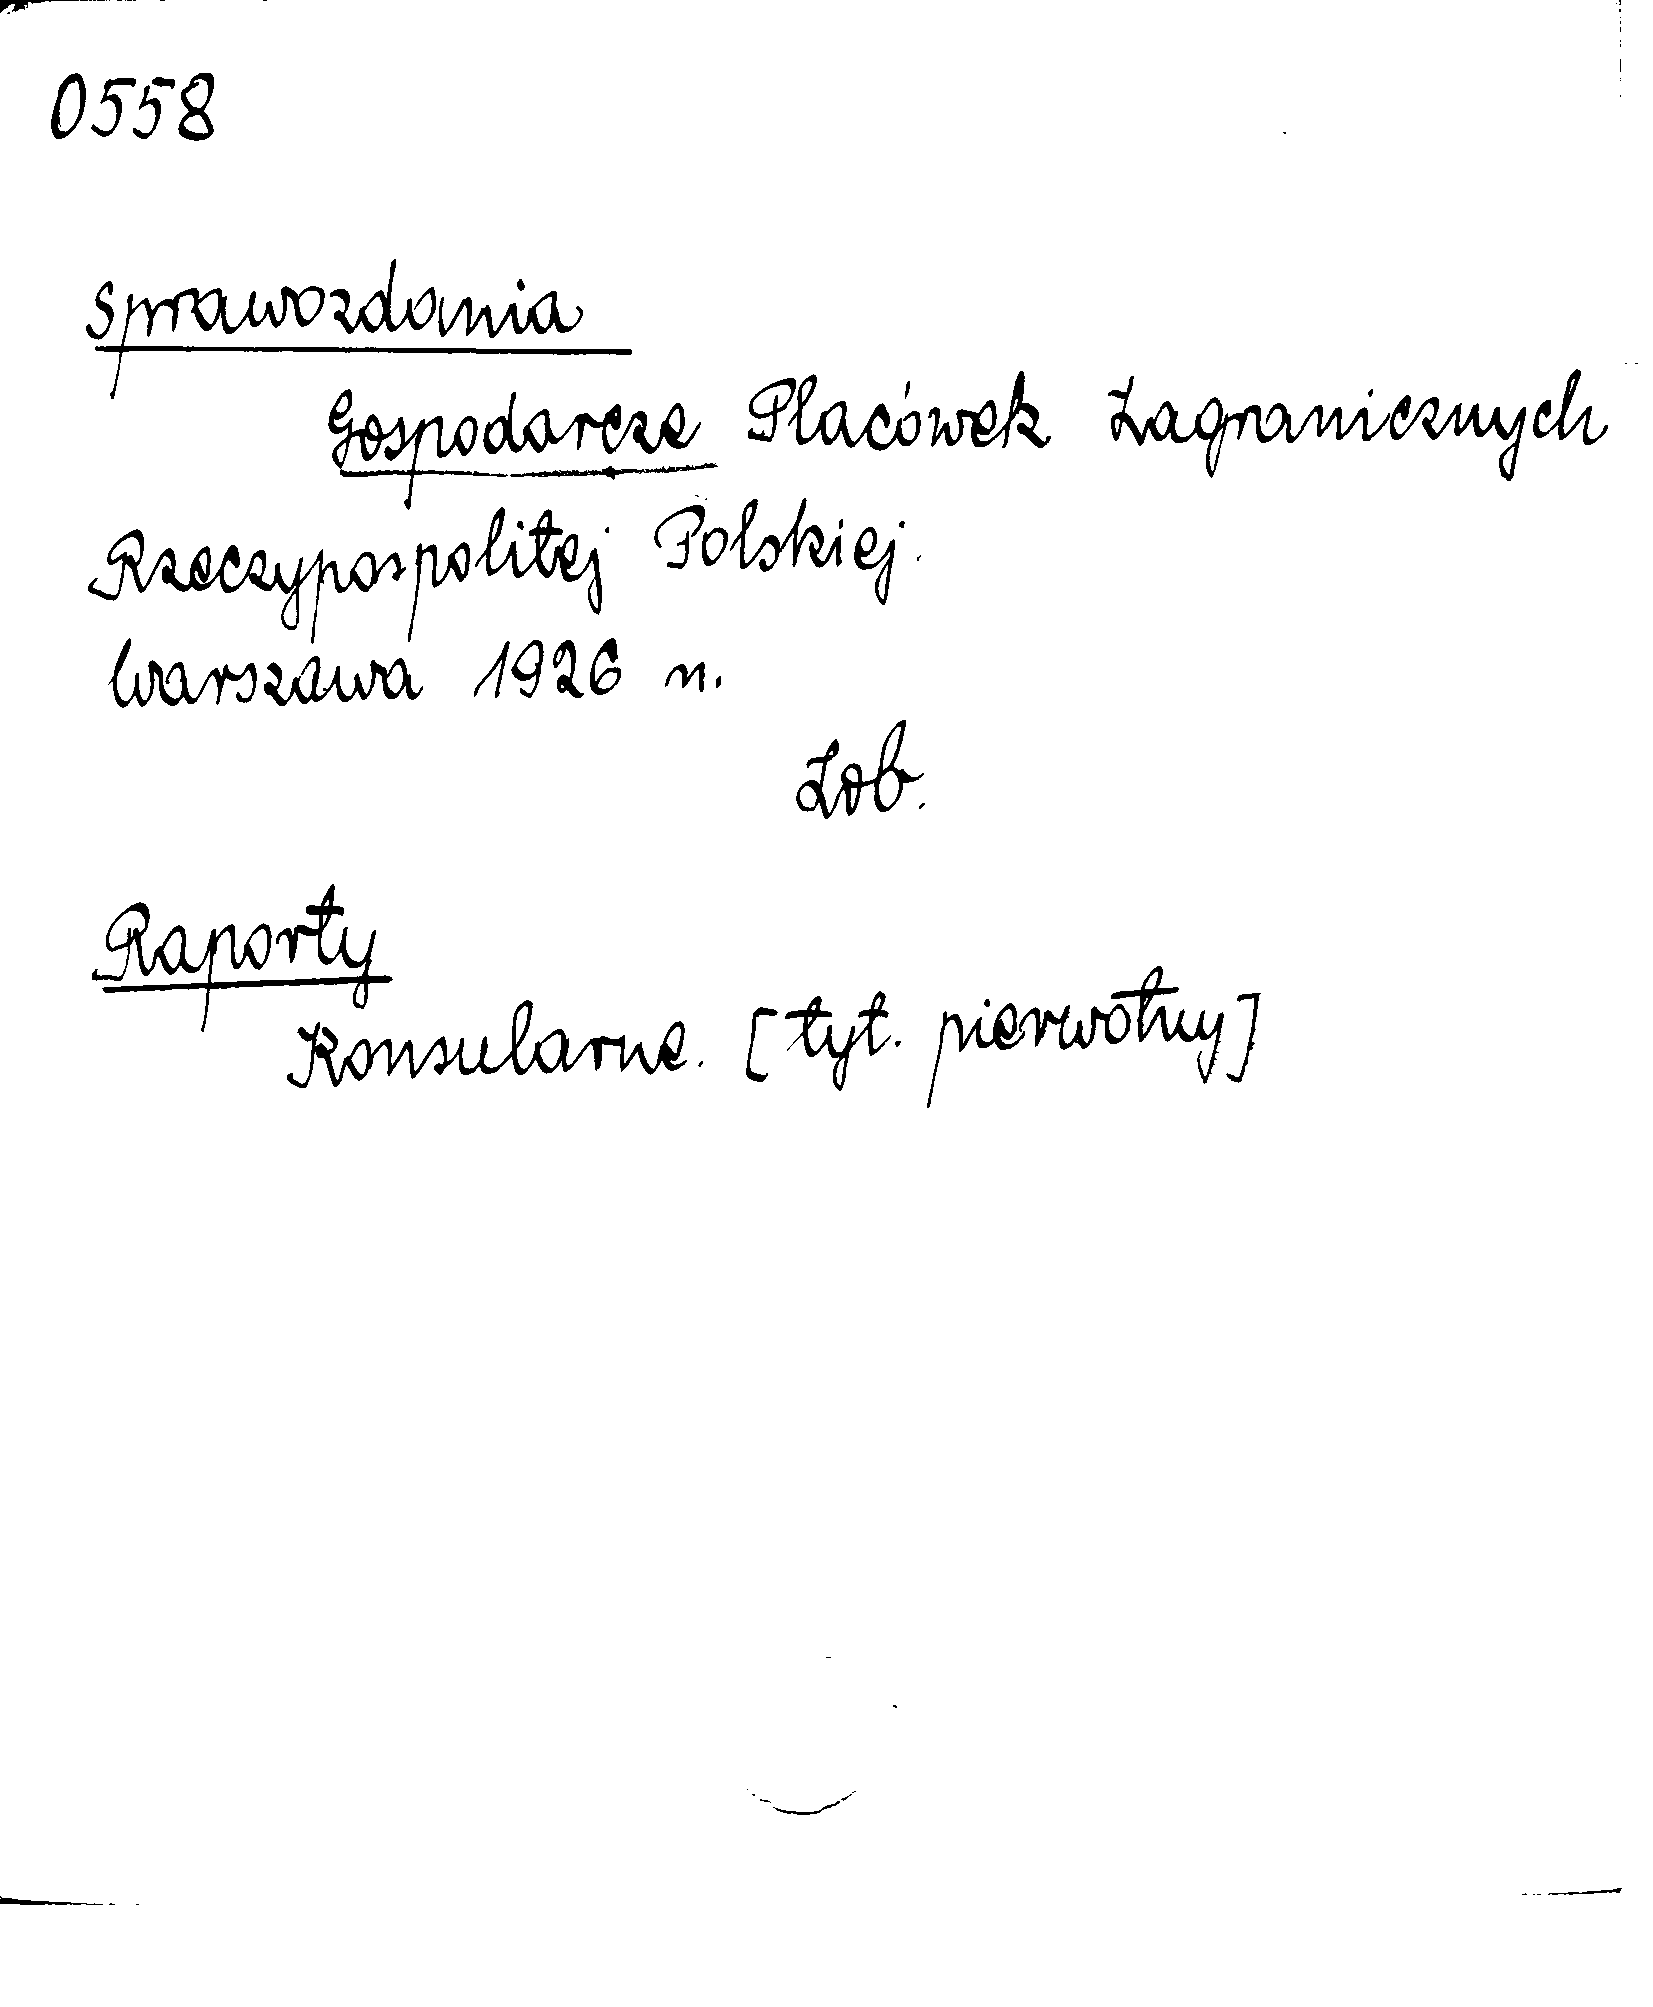 0558
Sprawozdania
Gospodarcze Placówek Zagranicznych
Rzeczypospolitej Polskiej.
Warszawa 1926 n.
Zob.
Raporty
Konsularne. [tyt. pierwotny]